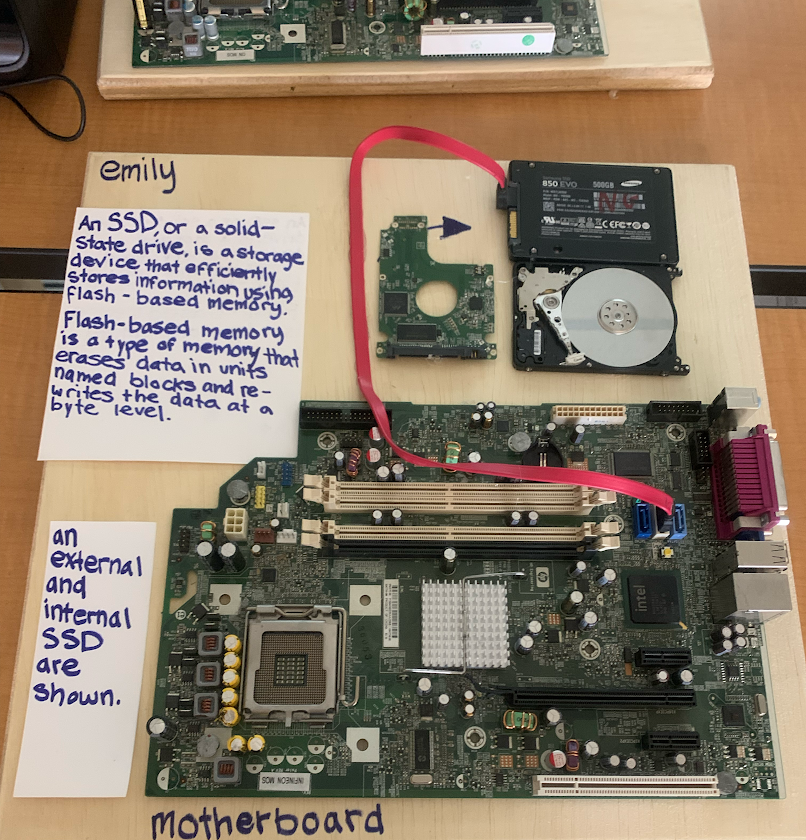 emily
An SSD, or a solid-
state drive, is a storage
device that efficiently
stores information using
flash-based memory.
Flash-based memory
is a type of memory that
erases data in units
named blocks and re-
writes the data at a
byte level.
Samsung SSD
850 EVO 500GB
SAMSUNG
NG
an
external
and
internal
SSD
are
shown.
hp
intel
INFINEON MOS
motherboard